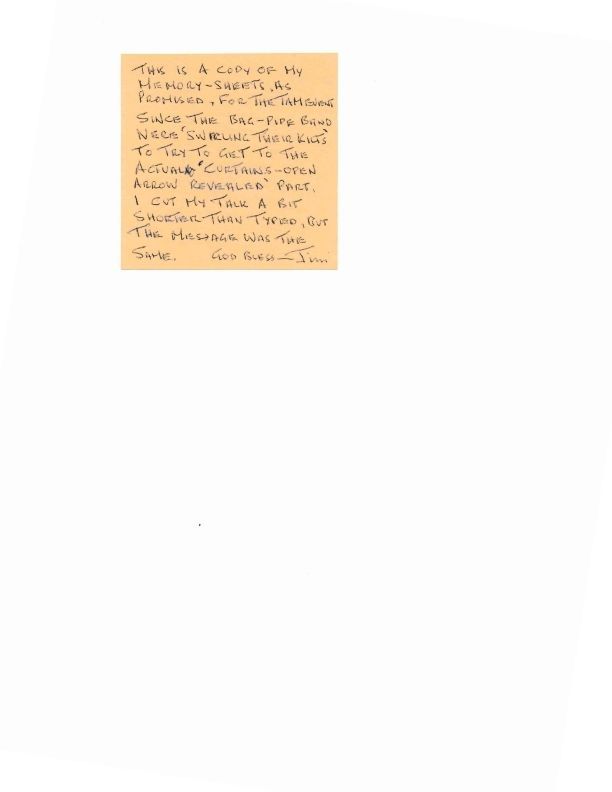 THIS IS A COPY OF MY
MEMORY-SHEETS, AS
PROMISED, FOR THE TAM EVENT
SINCE THE BAG-PIPE BAND
WERE 'SWIRLING THEIR KILTS'
TO TRY TO GET TO THE
ACTUAL 'CURTAINS-OPEN
ARROW REVEALED' PART,
I CUT MY TALK A BIT
SHORTER THAN TYPED, BUT
THE MESSAGE WAS THE
SAME. GOD BLESS — Jim